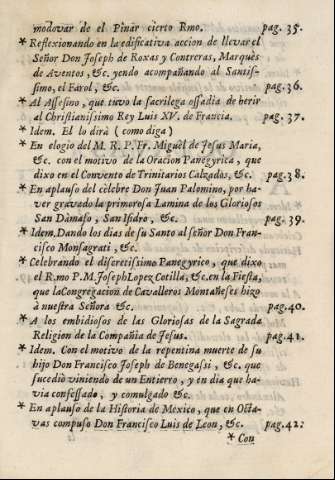 modovar de el Pinar cierto Rmo. pag. 35.
* Reflexionando en la edificativa accion de llevar el
Señor Don Joseph de Roxas y Contreras, Marquès
de Aventos, &c. yendo acompañando al Santis-
simo, el Farol, &c. pag. 36.
* Al Assesino, que tuvo la sacrilega ossadia de herir
al Christianissimo Rey Luis XV. de Francia. pag. 37.
* Idem. El lo dirà ( como diga )
* En elogio del M. R. P. Fr. Miguèl de Jesus Maria,
&c. con el motivo de la Oracion Panegyrica, que
dixo en el Convento de Trinitarios Calzados, &c. pag. 38.
* En aplauso del cèlebre Don Juan Palomino, por ha-
ver gravado la primorosa Lamina de los Gloriosos
San Dàmaso, San Isidro, &c. pag. 39.
* Idem. Dando los dias de su Santo al señor Don Fran-
cisco Monsagrati, &c.
* Celebrando el discretissimo Panegyrico, que dixo
el R.mo P.M. Joseph Lopez Cotilla, &c. en la Fiesta,
que la Congregacion de Cavalleros Montañeses hizo
à nuestra Señora &c. pag. 40.
* A los embidiosos de las Gloriosas de la Sagrada
Religion de la Compañia de Jesus. pag. 41.
* Idem. Con el motivo de la repentina muerte de su
hijo Don Francisco Joseph de Benegassi, &c. que
sucediò viniendo de un Entierro, y en dia que ha-
via confessado, y comulgado &c.
* En aplauso de la Historia de Mexico, que en Octa-
vas compuso Don Francisco Luis de Leon, &c. pag. 42.
* Con